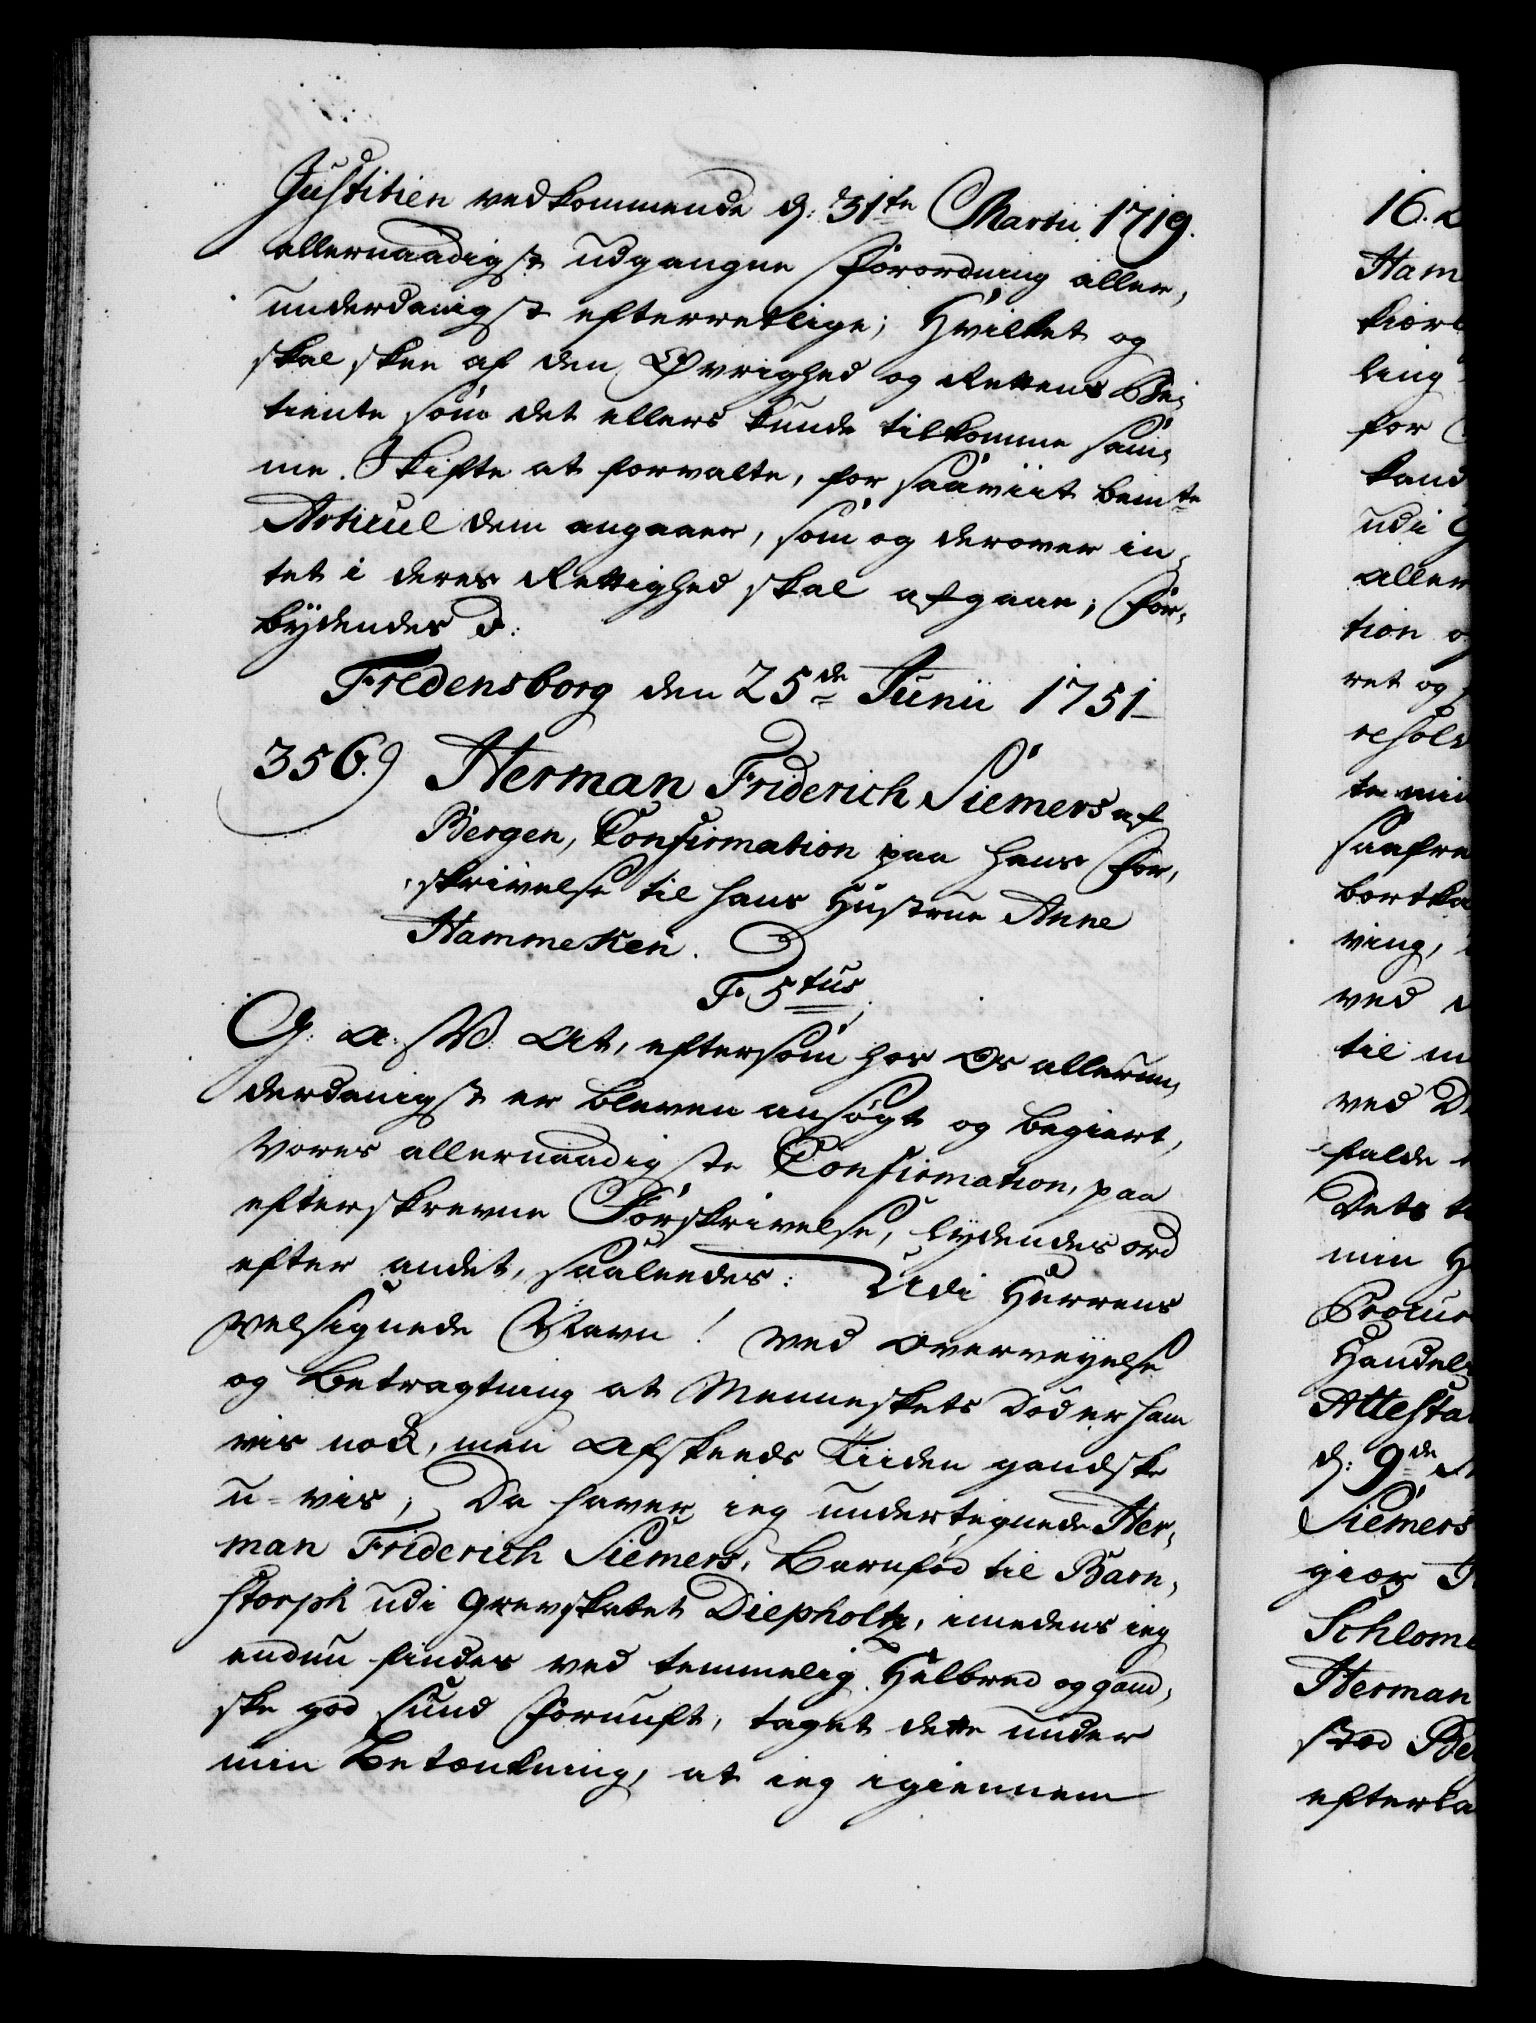 Justitien vedkommende d: 31te Martii 1719.
allernaadigst udgangne Forordning aller,
underdanigst efterretlige; Hvilket og
skal skee af den Øvrighed og Rettens Be,
tiente som det ellers kunde tilkomme sam,
me Skifte at forvalte, for saaviit bemte
Articul dem angaaer, som og derover in,
tet i deres Rettighed skal afgaae; For,
bydendes p:
Fredensborg den 25de Junii 1751
356.) Herman Friderich Siemers af
Bergen, Confirmation paa hans For,
skrivelse til hans Hustrue Anne
Hammeken.
F. 5tus
G: A: W: At, eftersom hos Os allerun,
derdanigst er bleven ansøgt og begiert,
Vores allernaadigste Confirmation, paa
efterskrevne Forskrivelse, lydendes ord
efter andet, saaleedes: Udi Herrens
velsignede Navn! ved overveyelse
og Betragtning at Menneskets Død er ham
vis nock, men Afskeeds Tiiden gandske
u-vis; Da haver ieg undertegnede Her,
man Friderich Siemers, Barnfød til Barn,
storph udi Grevskabet Diepholtz, imedens ieg
endnu findes ved temmelig Helbred og gand,
ske god sund Fornuft, taget dette under
min Betænkning, at ieg igiennem
16. 
Ham
kiær
ling
for
kand
udi
aller
tion
ret og
resolv
te min
saafre
bortka
ving,
ved
til
ved
falde
Dets
min
Procur
Handel
Attesta
d: 9de
Siemers
giær
Schlom
Herman
sted Be
efterla